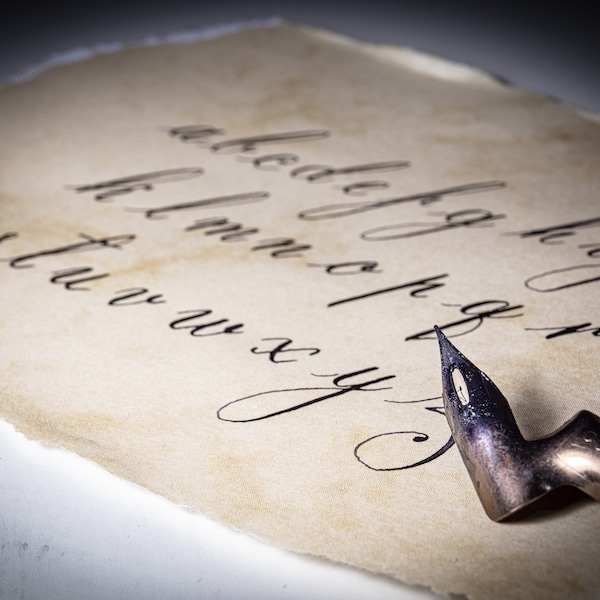 a b c d e f g h
k l m n o p q r
t u v w x y z